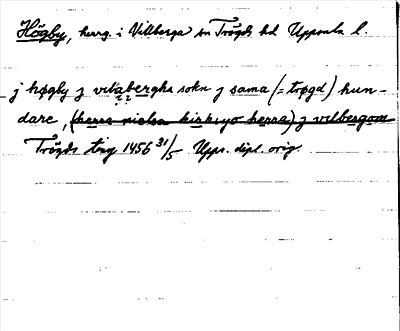 Högby, herrg. i Villberga sn Trögds hd Uppsala l.
j høgby j vilabergha sokn j sama (= trøgd) hun-
? ?
dare, (herra nielsa kirkiyo herra) j vilbergom
Trögds ting 1456 31/5 Upps. dipl. orig.